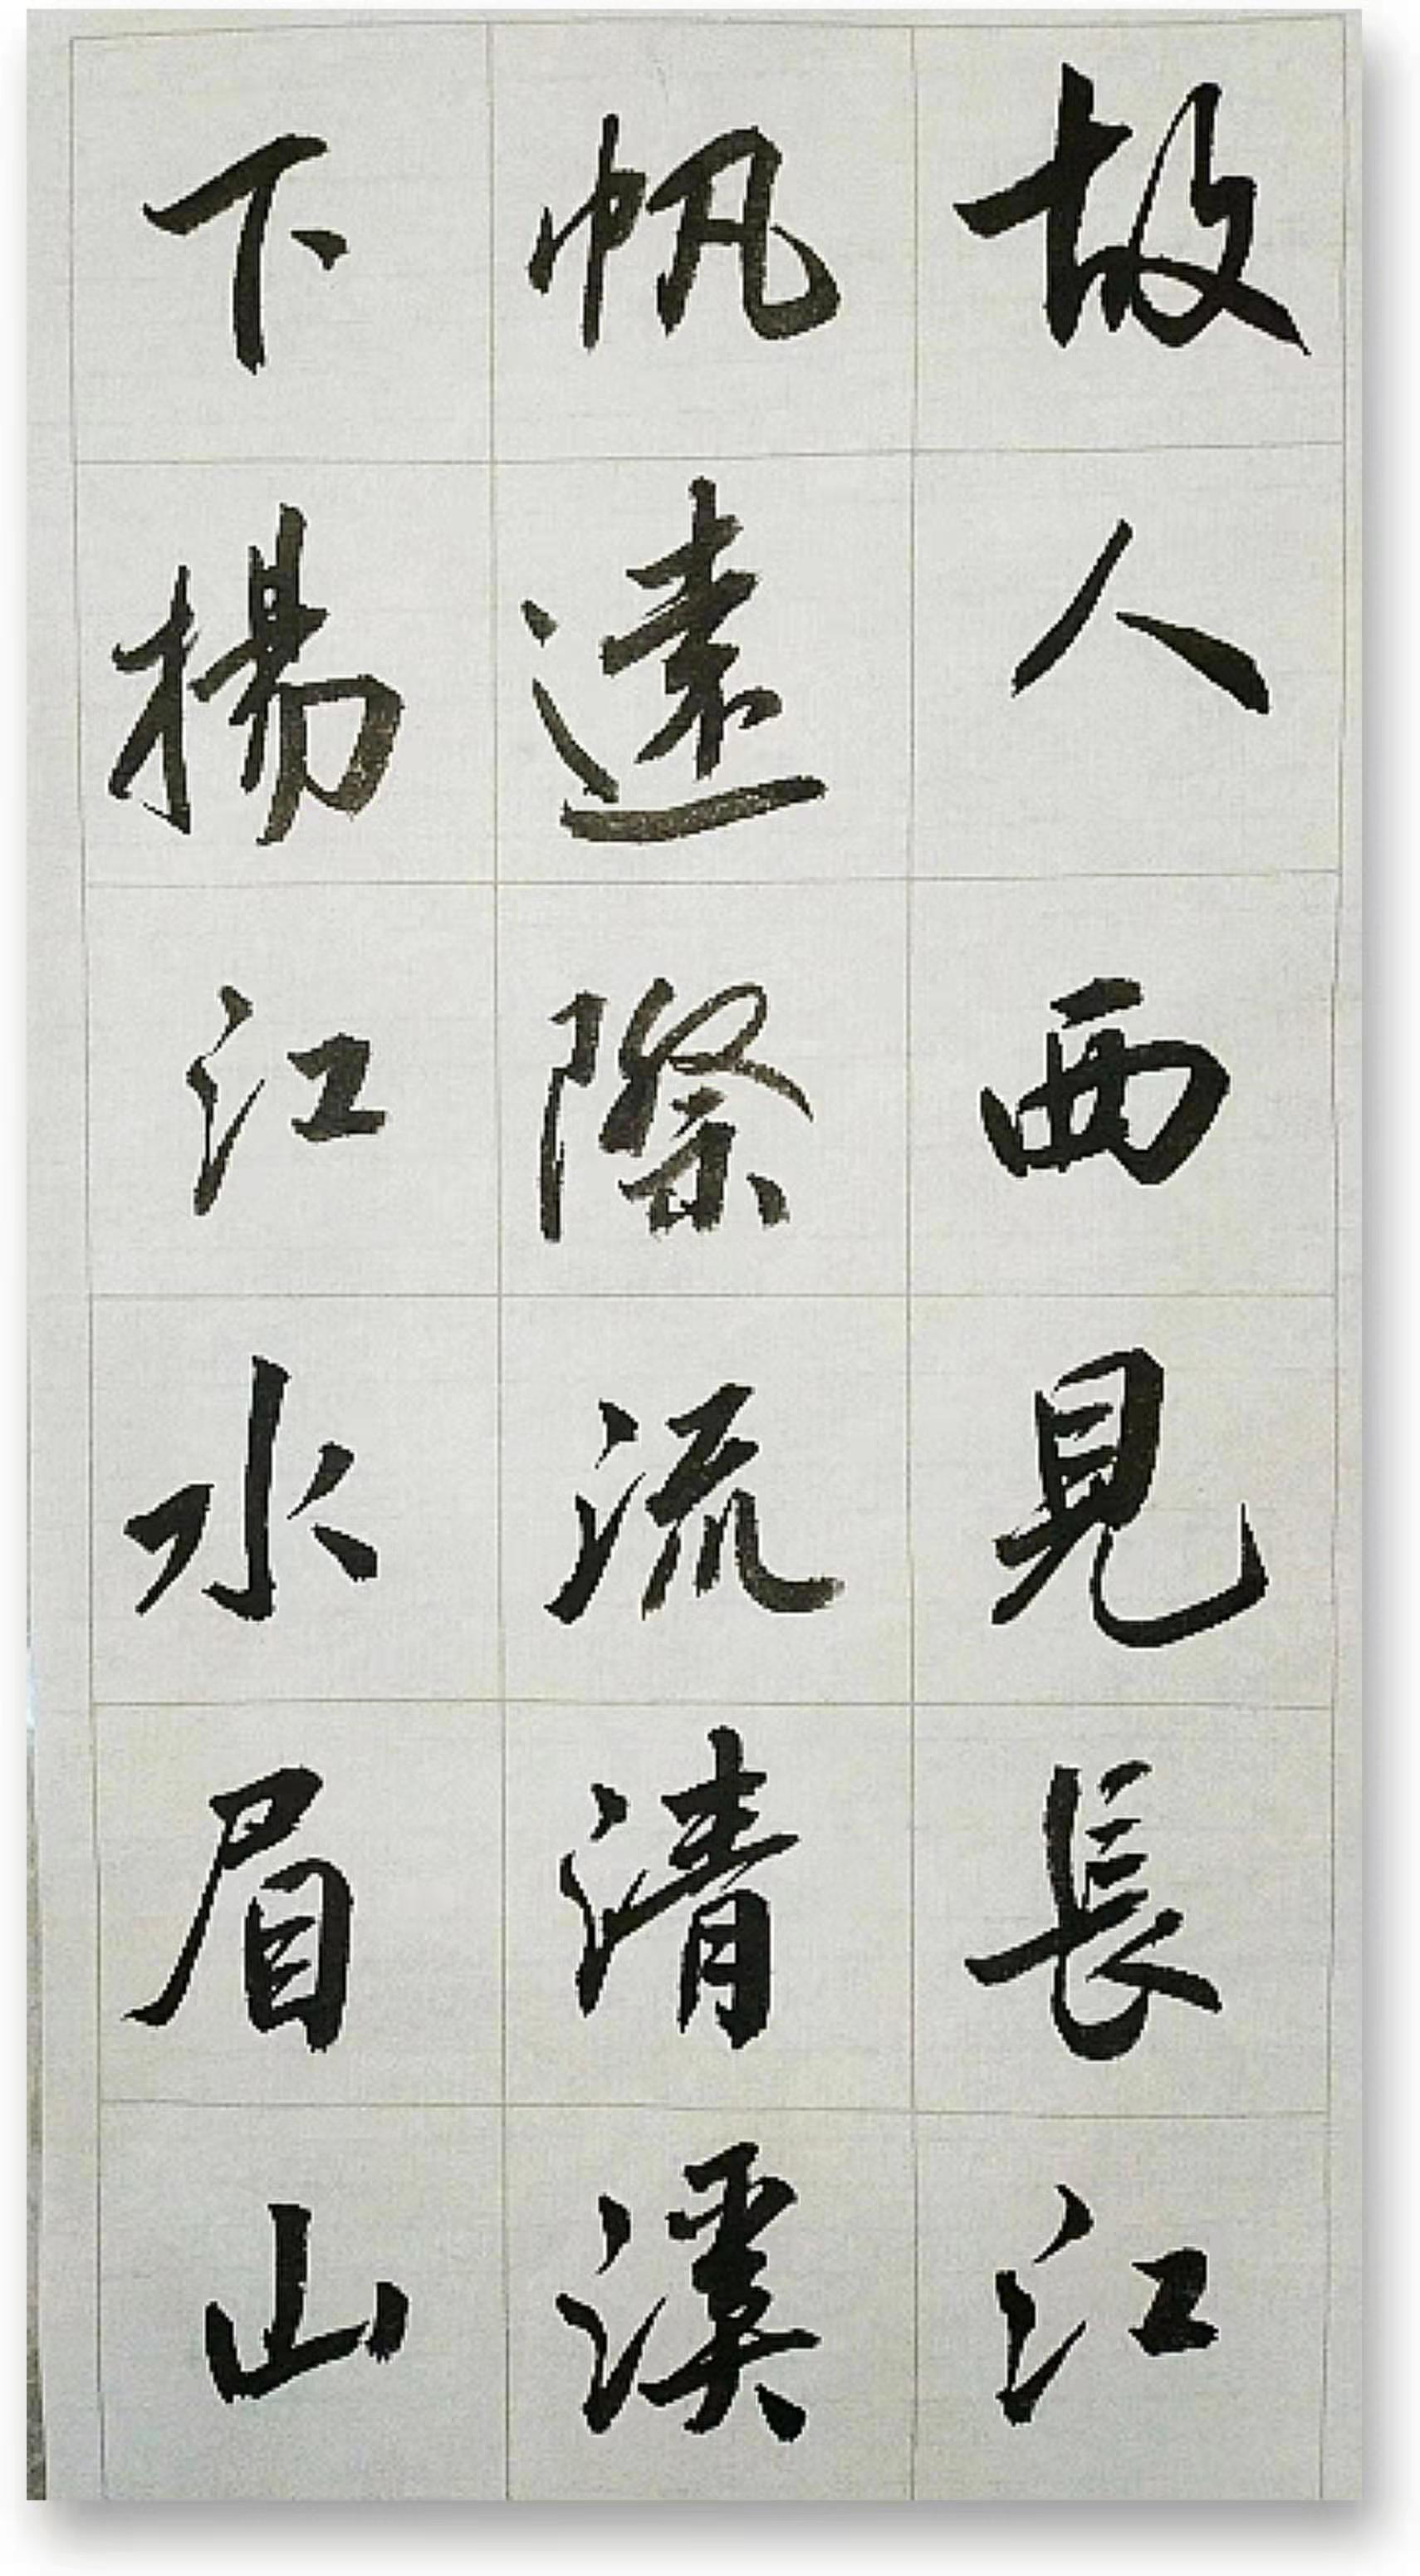 故人西見長江
帆遠際流清溪
下揚江水眉山